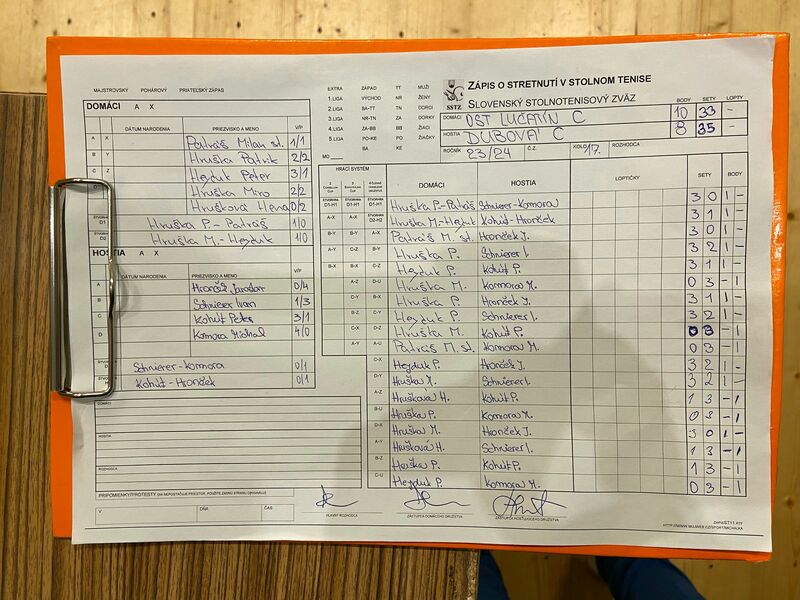 MAJSTROVSKÝ POHÁROVÝ PRIATEĽSKÝ ZÁPAS
DOMÁCI A X
DÁTUM NARODENIA PRIEZVISKO A MENO V/P
A X Patráš Milan st. 1/1
B Y Hruška Patrik 2/2
C Z Hejduk Peter 3/1
Hruška Miro 2/2
Hrušková Hena 0/2
ŠTVORHRA D1 Hruška P. - Patráš 1/0
ŠTVORHRA D2 Hruška M. - Hejduk 1/0
HOSTIA A X
DÁTUM NARODENIA PRIEZVISKO A MENO V/P
A Hronček Jaroslav 0/4
B Schnierer Ivan 1/3
C Kohút Peter 3/1
D Komora Michal 4/0
Schnierer - Komora 0/1
Kohút - Hronček 0/1
DOMÁCI
HOSTIA
ROZHODCA
PRIPOMIENKY/PROTESTY (AK NEPOSTAČUJE PRIESTOR, POUŽITE ZADNÚ STRANU) (SIGNUJTE)
V DŇA ČAS
EXTRA ZÁPAD TT MUŽI
1.LIGA VÝCHOD NR ŽENY
2.LIGA BA-TT TN DORCI
3.LIGA NR-TN ZA DORKY
4.LIGA ZA-BB BB ŽIACI
5.LIGA PO-KE PO ŽIAČKY
MO BA KE
SSTZ
ZÁPIS O STRETNUTÍ V STOLNOM TENISE
SLOVENSKÝ STOLNOTENISOVÝ ZVÄZ
BODY SETY LOPTY
DOMÁCI OST LUČATÍN C 10 33 -
HOSTIA DUBOVÁ C 8 35 -
ROČNÍK 23/24 Č.Z. KOLO 17. ROZHODCA
HRACÍ SYSTÉM
DOMÁCI HOSTIA LOPTIČKY SETY BODY
ŠTVORHRA D1-H1 ŠTVORHRA D1-H1 ŠTVORHRA D1-H1 Hruška P. - Patráš Schnierer - Komora 3 0 1 -
A-X A-X ŠTVORHRA D2-H2 Hruška M. - Hejduk Kohút - Hronček 3 1 1 -
B-Y B-Y A-X Patráš M. st. Hronček J. 3 0 1 -
A-Y C-Z B-Y Hruška P. Schnierer I. 3 2 1 -
B-X B-X C-Z Hejduk P. Kohút P. 3 1 1 -
A-Z D-U Hruška M. Komora M. 0 3 - 1
C-Y B-X Hruška P. Hronček J. 3 1 1 -
B-Z C-Y Hejduk P. Schnierer I. 3 2 1 -
C-X D-Z Hruška M. Kohút P. 0 3 - 1
A-Y A-U Patráš M. st. Komora M. 0 3 - 1
C-X Hejduk P. Hronček J. 3 2 1 -
D-Y Hruška M. Schnierer I. 3 2 1 -
A-Z Hrušková H. Kohút P. 1 3 - 1
B-U Hruška P. Komora M. 0 3 - 1
D-X Hruška M. Hronček J. 3 0 1 -
A-Y Hrušková H. Schnierer I. 1 3 - 1
B-Z Hruška P. Kohút P. 1 3 - 1
C-U Hejduk P. Komora M. 0 3 - 1
HLAVNÝ ROZHODCA ZÁSTUPCA DOMÁCEHO DRUŽSTVA ZÁSTUPCA HOSŤUJÚCEHO DRUŽSTVA